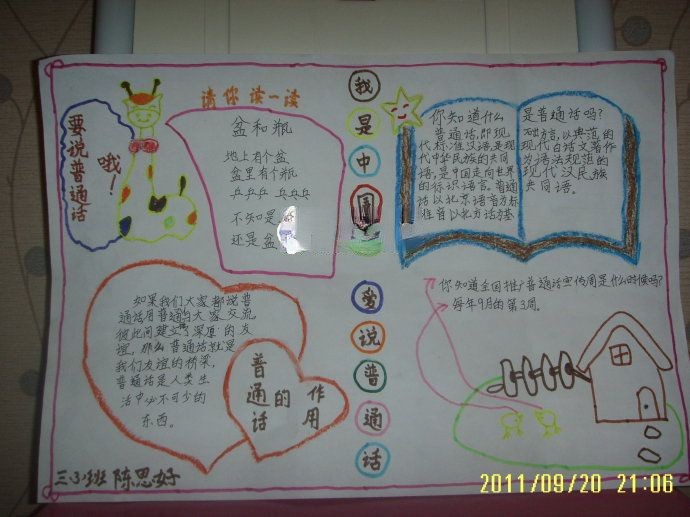 要说普通话
哦！
请你读一读
盆和瓶
地上有个盆
盆里有个瓶
乒乒乒 乓乓乓
不知是
还是盆
我是中国
爱说普通话
你知道什么
是普通话吗？
普通话,即现
代标准汉语,是现
代中华民族的共同
语,是中国走向世界
的标识语言。普通
话以北京语音为标
准音以北方话为基
础方言,以典范的
现代白话文著作
为语法规范的
现代汉民族
共同语。
如果我们大家都说普
通话用普通的大家交流,
彼此间建立深厚的友
谊,那么普通话就是
我们友谊的桥梁,
普通话是人类生
活中必不可少的
东西。
普通话的作用
你知道全国推广普通话宣传周是什么时候吗？
每年9月的第3周。
三.3班 陈思好
2011/09/20 21:06